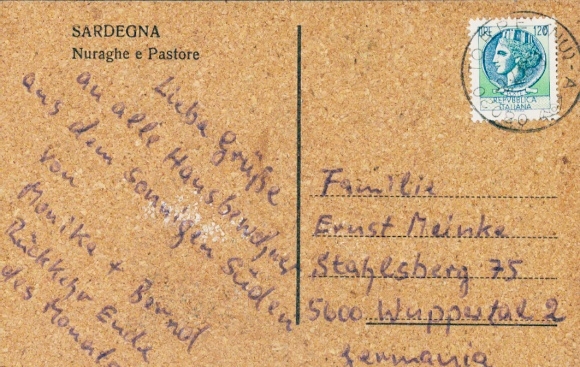 SARDEGNA
Nuraghe e Pastore
Liebe Grüße
an alle Hausbewohner
aus dem sonnigen Süden
von
Monika + Bernd
Rückkehr Ende
des Monats
LIRE 120
REPVBBLICA
ITALIANA
Familie
Ernst Meinke
Stahlsberg 75
5600 Wuppertal 2
Germania